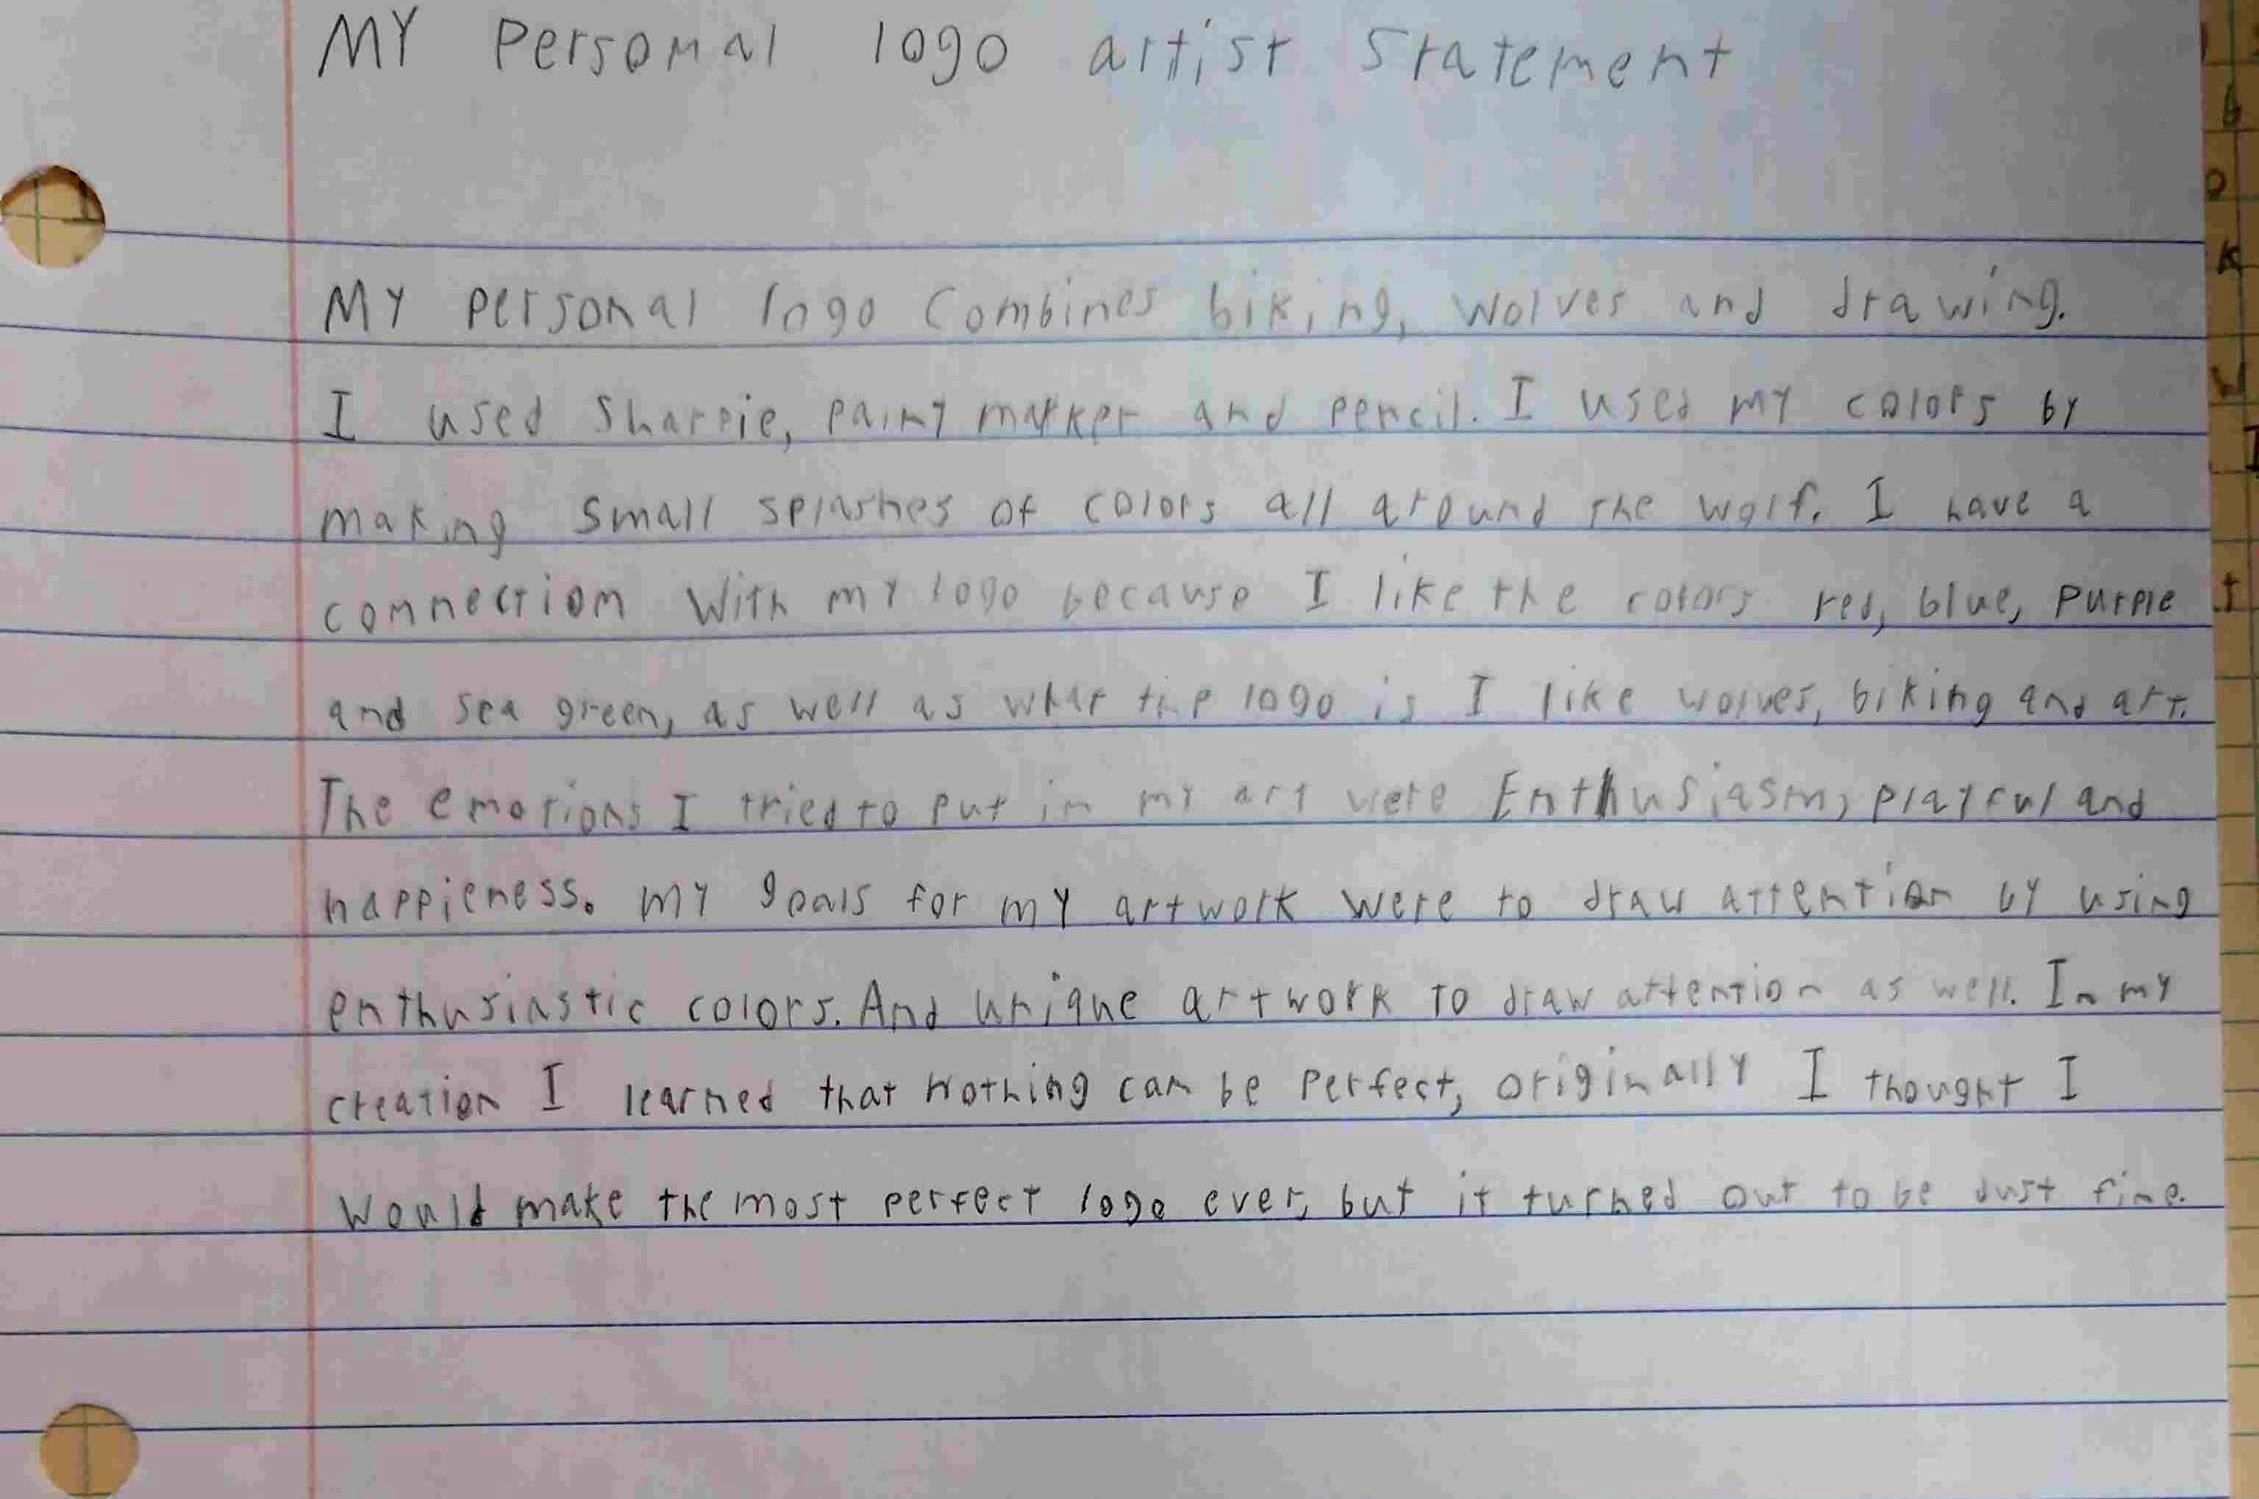 MY Personal logo artist Statement
MY personal logo Combines biking, Wolves and drawing.
I used Sharpie, paint marker and pencil. I used my colors by
making small splashes of colors all around the wolf. I have a
connection With my logo because I like the colors red, blue, purple
and sea green, as well as what the logo is I like wolves, biking and art.
The emotions I tried to put in my art were Enthusiasm, playful and
happieness. my goals for my artwork were to draw attention by using
enthusiastic colors. And unique artwork to draw attention as well. In my
creation I learned that nothing can be perfect, originally I thought I
Would make the most perfect logo ever, but it turned out to be Just fine.